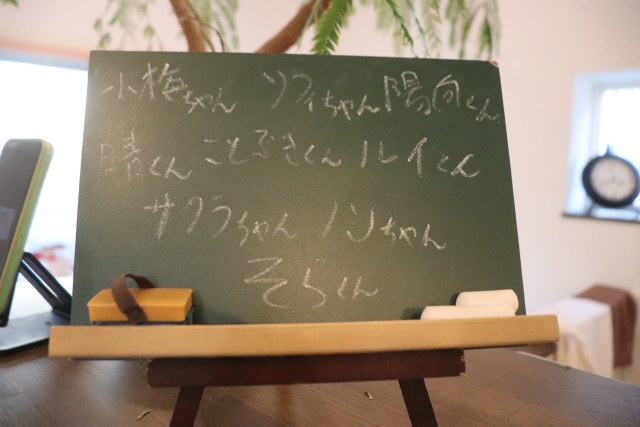 小梅ちゃん ソフィちゃん 陽向くん
晴くん ことぶきくん ルイくん
サクラちゃん ノンちゃん
そらくん